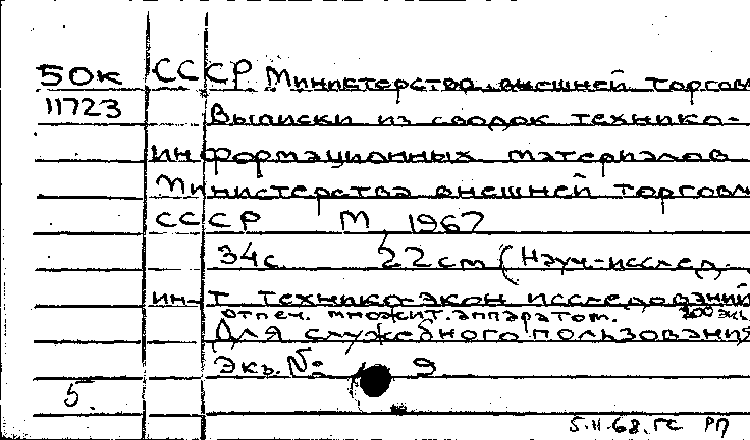 50к СССР Министерство внешней торгов
11723 Выписки из сводок технико-
информационных материалов
Министерства внешней торговл
СССР М, 1967
34с. 22 см (Науч.-исслед.
ин-т технико-экон исследований
отпеч. множит. аппаратом. 200 экз
Для служебного пользования
Экз. № 9
5.
5.II.68.гс РП